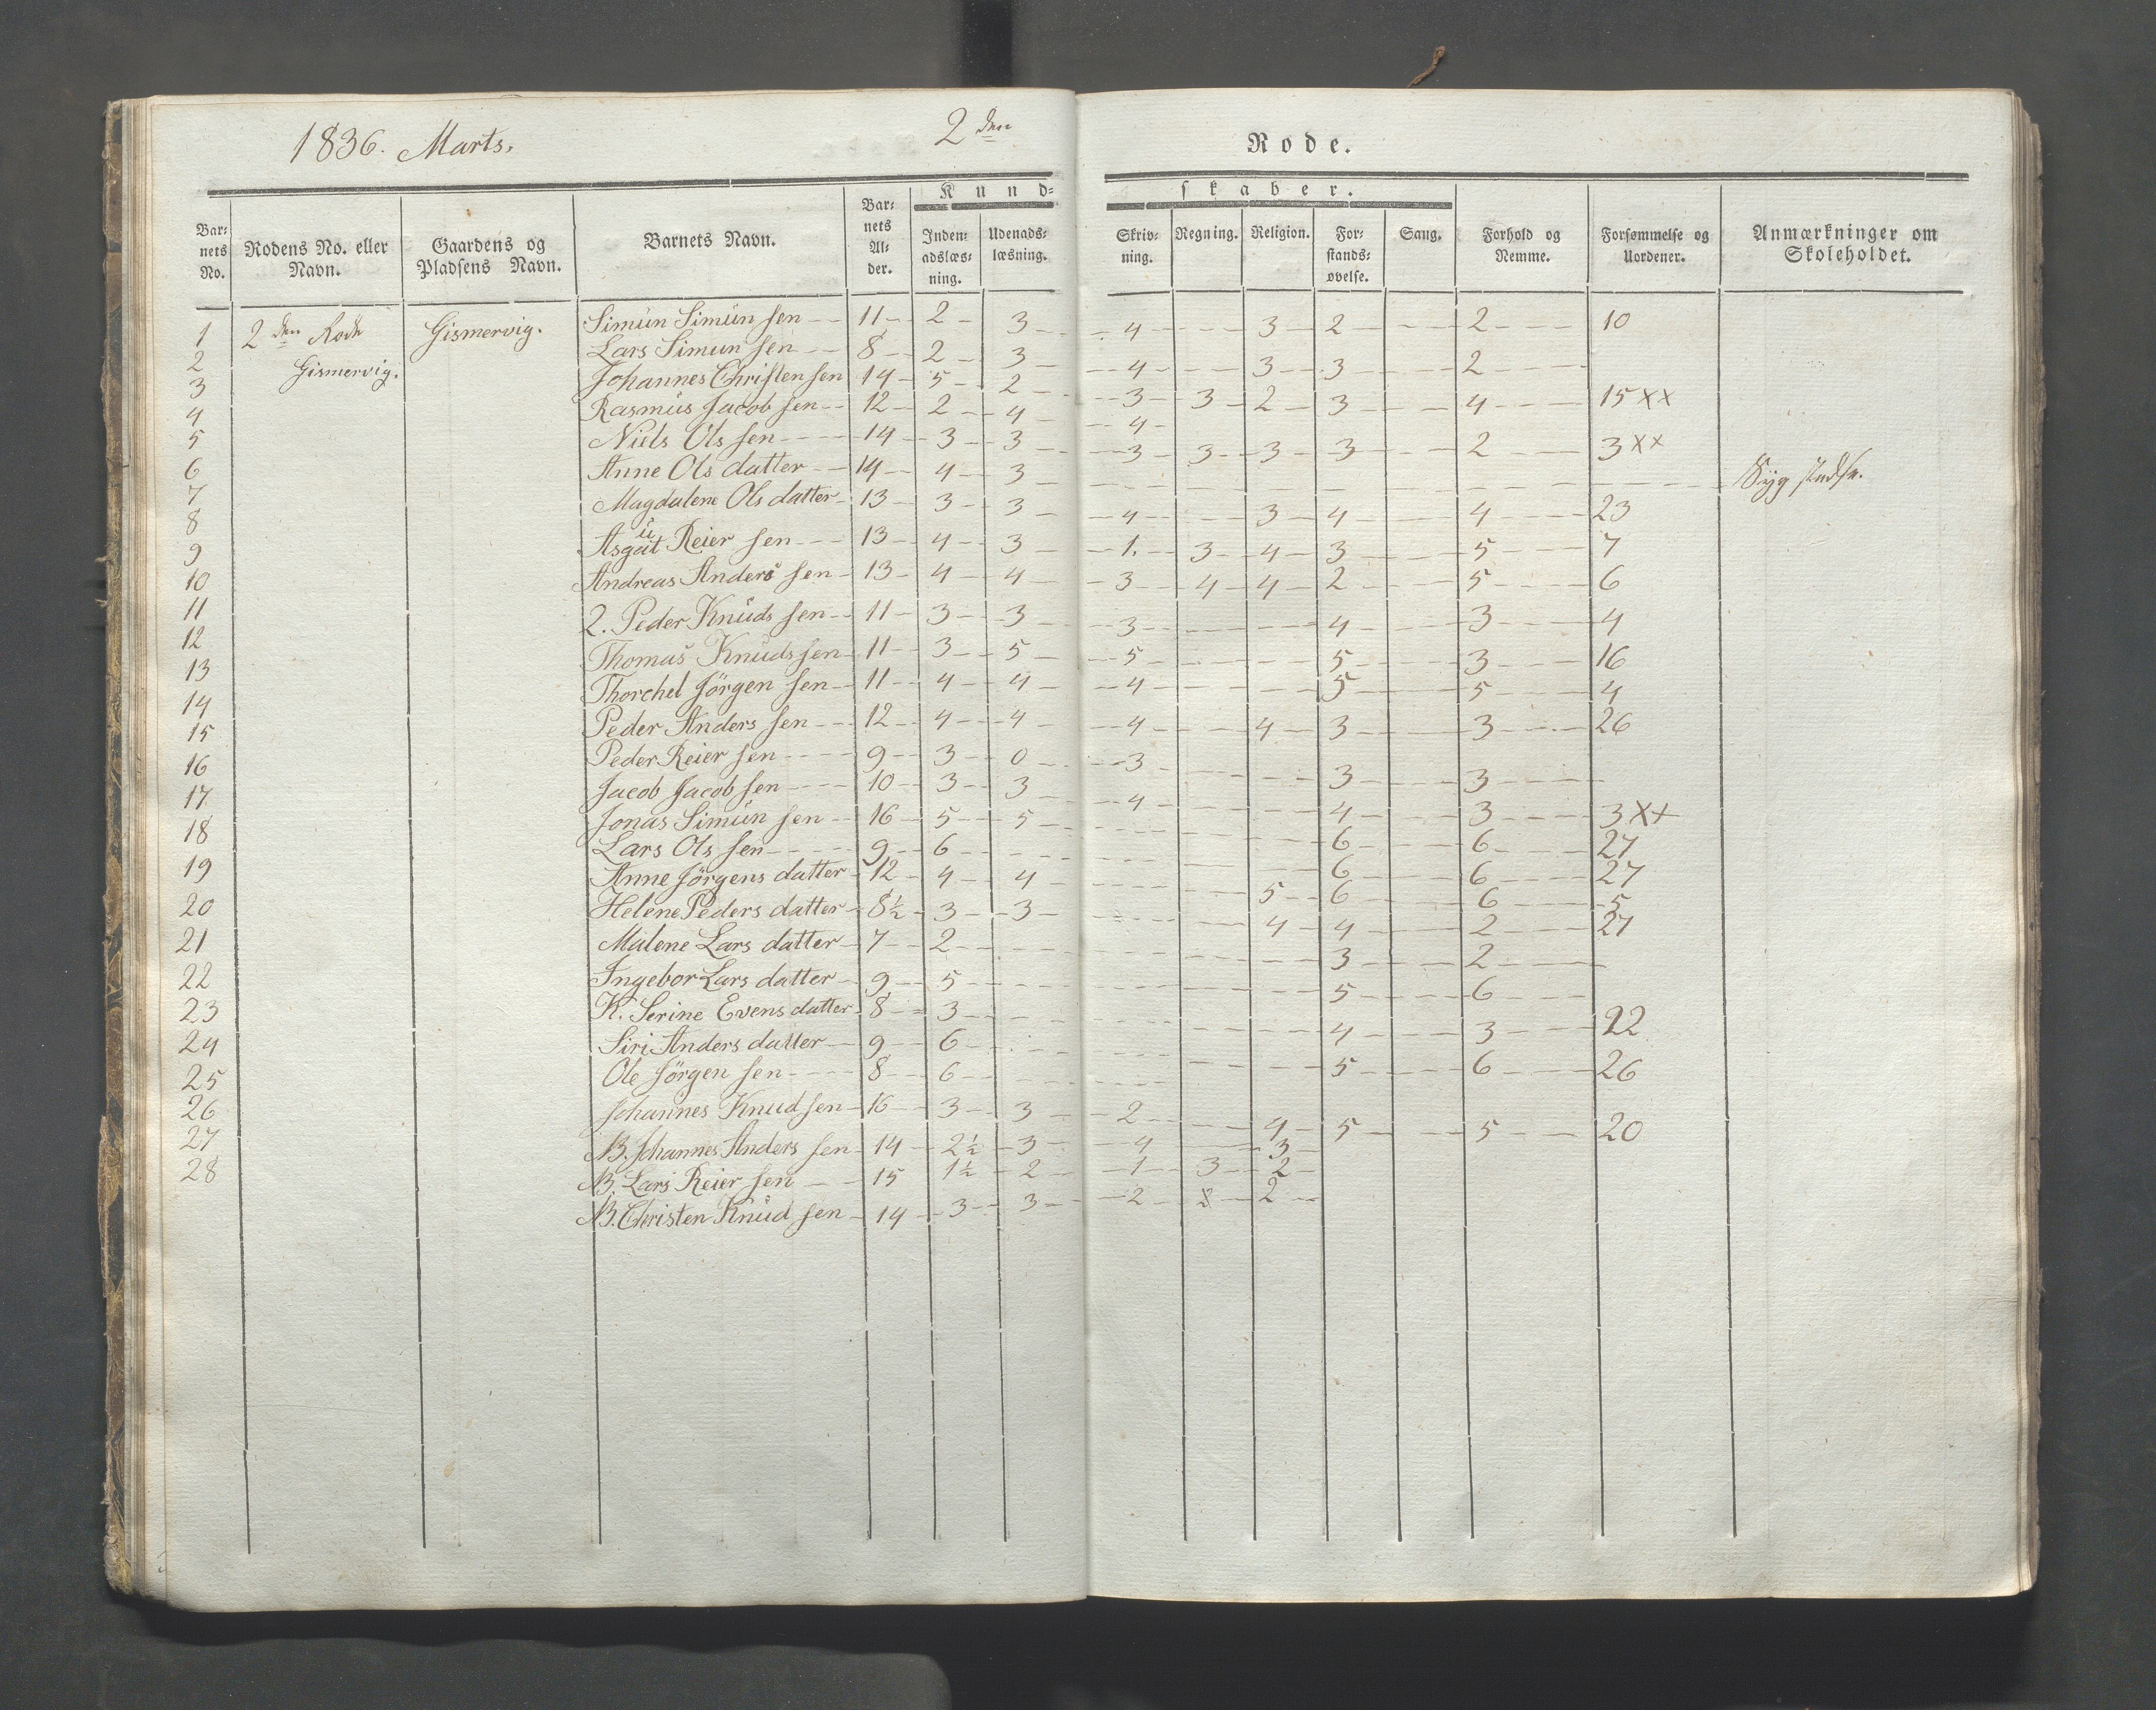 1836. Marts. 2den Rode.
Kund= skaber.
Bar= nets No. | Rodens No. eller Navn. | Gaardens og Pladsens Navn. | Barnets Navn. | Bar= nets Al= der. | Inden= adslæs= ning. | Udenads= læsning. | Skriv= ning. | Regning. | Religion. | For= stands= øvelse. | Sang. | Forhold og Nemme. | Forsømmelse og Uordener. | Anmærkninger om Skoleholdet.
1 2den Rode Gismervig. Simün Simün sen 11 2 3 4 3 2 2 10
2 Gismervig. Lars Simun sen 8 2 3 4 3 3 2
3 Johannes Christen sen 14 5 2 3 3 2 3 4 15 xx
4 Rasmüs Jacob sen 12 2 4 4
5 Niels Ols sen 14 3 3 3 3 3 3 2 3 xx
6 Anne Ols datter 14 4 3 Syg
7 Magdalene Ols datter 13 3 3 4 3 4 4 23
8 Asgüt Reier sen 13 4 3 1. 3 4 3 5 7
9 Andreas Anders sen 13 4 4 3 4 4 2 5 6
10 2. Peder Knüds sen 11 3 3 3 4 3 4
11 Thomas Knüds sen 11 3 5 5 5 3 16
12 Thorchel Jörgen sen 11 4 4 4 5 5 4
13 Peder Anders sen 12 4 4 4 4 3 3 26
14 Peder Reier sen 9 3 0 3 3 3
15 Jacob Jacob sen 10 3 3 4 4 3 3 xx
16 Jonas Simün sen 16 5 5 6 6 27
17 Lars Ols sen 9 6 6 6 27
18 Anne Jörgens datter 12 4 4 5 6 6 5
19 Helene Peders datter 8½ 3 3 4 4 2 27
20 Malene Lars datter 7 2 3 2
21 Ingebor Lars datter 9 5 5 6
22 K. Serine Evens datter 8 3 4 3 22
23 Siri Anders datter 9 6 5 6 26
24 Ole Jörgen sen 8 6
25 Johannes Knud sen 16 3 3 2 4 5 5 20
26 NB. Johannes Anders sen 14 2½ 3 4 3
27 NB. Lars Reier sen 15 1½ 2 1 3 2
28 NB. Christen Knüd sen 14 3 3 2 2